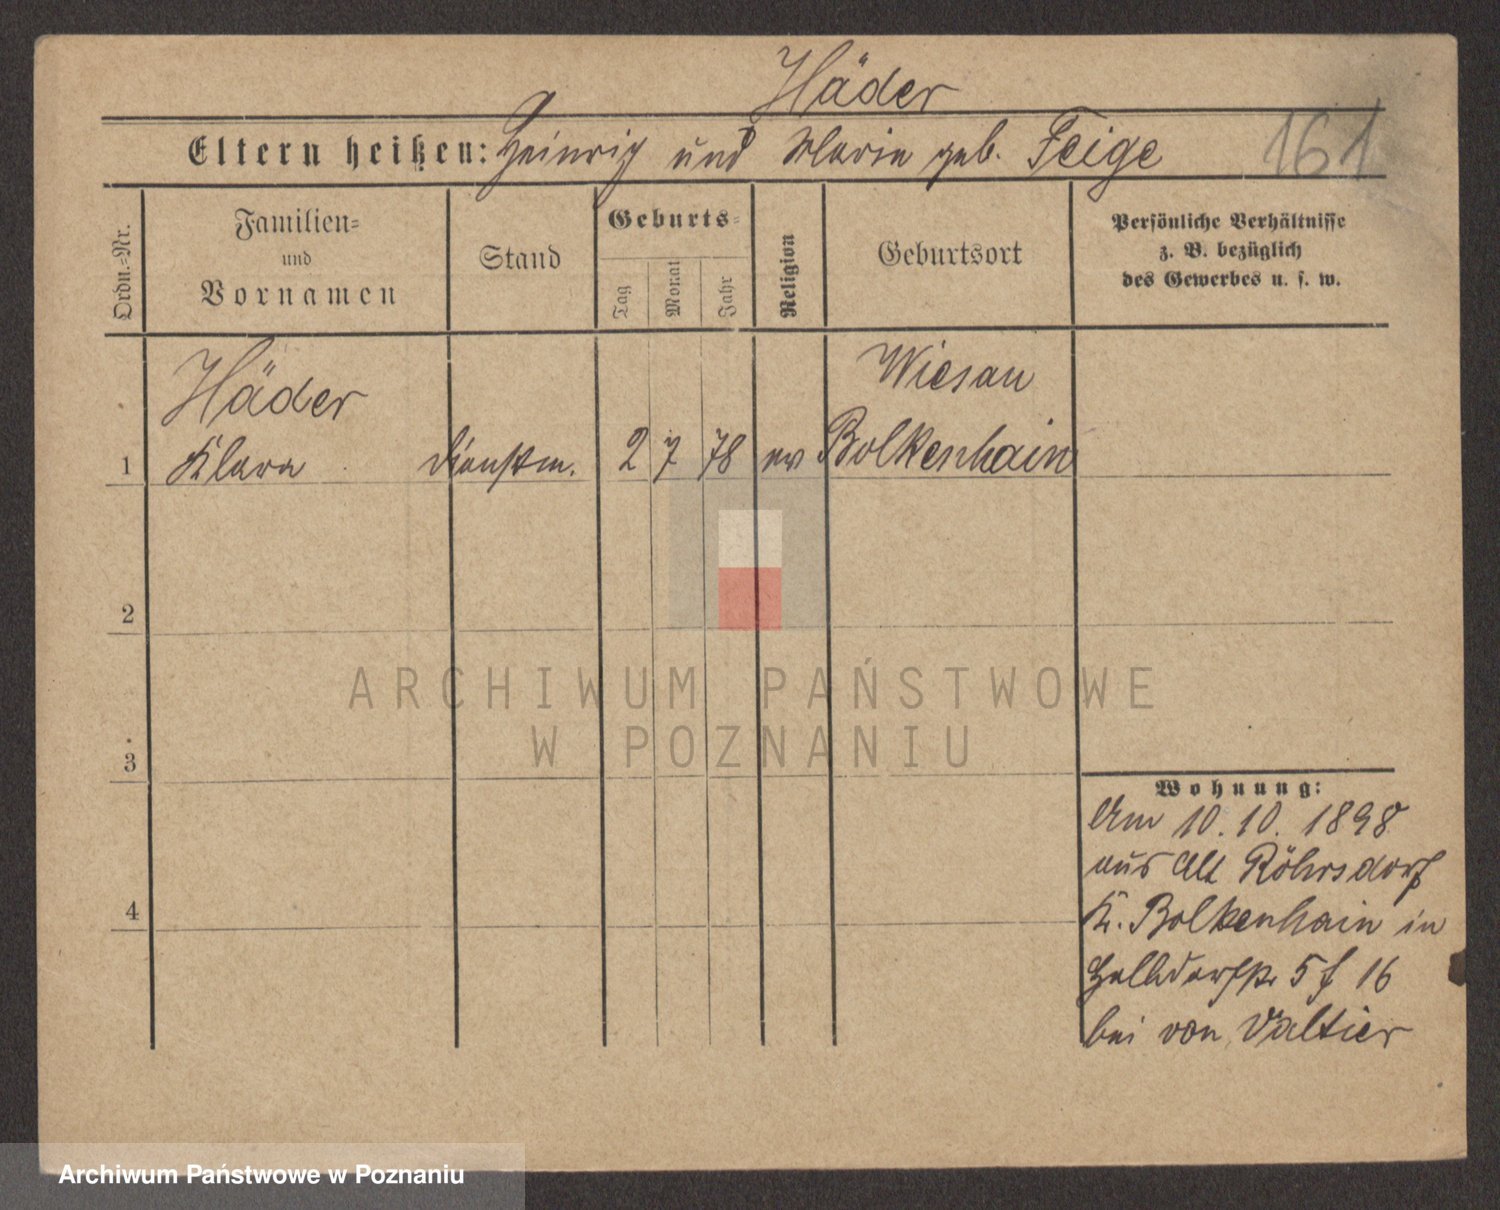 Häder
Eltern heißen: Heinrich und Maria geb. Feige
161
Ordn.-Nr.
Familien-
und
Vornamen
Stand
Geburts-
Tag
Monat
Jahr
Religion
Geburtsort
Persönliche Verhältnisse
z. B. bezüglich
des Gewerbes u. s. w.
Häder
Wiesau
1 Klara Dienstm. 2 7 78 ev Bolkenhain
2
3
4
ARCHIWUM PAŃSTWOWE
W POZNANIU
Wohnung:
Am 10. 10. 1898
aus Alt Röhrsdorf
K. Bolkenhain in
5 f 16
bei von Valtier
Archiwum Państwowe w Poznaniu